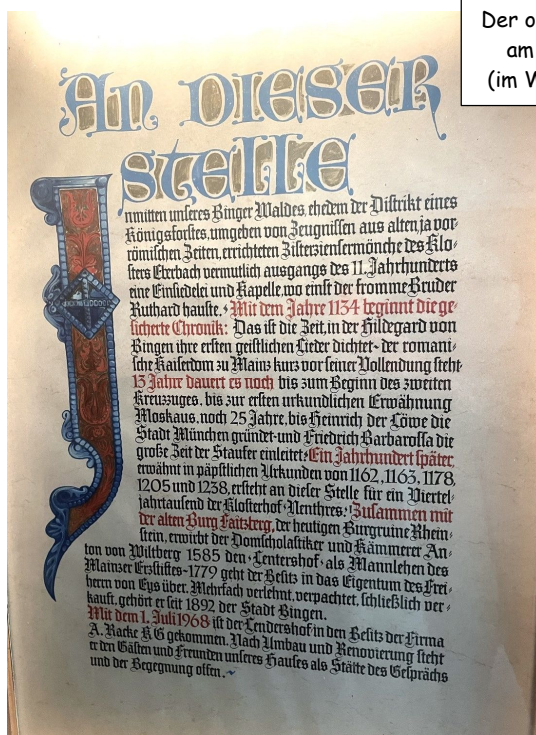 Der o
am
(im W
An Dieser
Stelle
Inmitten unseres Binger Waldes, ehedem der Distrikt eines
Königsforstes, umgeben von Zeugnissen aus alten, ja vor-
römischen Zeiten, errichteten Zisterziensermönche des Klo-
sters Eberbach vermutlich ausgangs des 11. Jahrhunderts
eine Einsiedelei und Kapelle, wo einst der fromme Bruder
Ruthard hauste. Mit dem Jahre 1134 beginnt die ge-
sicherte Chronik: Das ist die Zeit, in der Hildegard von
Bingen ihre ersten geistlichen Lieder dichtet - der romani-
sche Kaiserdom zu Mainz kurz vor seiner Vollendung steht-
13 Jahre dauert es noch bis zum Beginn des zweiten
Kreuzzuges, bis zur ersten urkundlichen Erwähnung
Moskaus, noch 25 Jahre, bis Heinrich der Löwe die
Stadt München gründet-und Friedrich Barbarossa die
große Zeit der Staufer einleitet. Ein Jahrhundert später,
erwähnt in päpstlichen Urkunden von 1162, 1163, 1178,
1205 und 1238, ersteht an dieser Stelle für ein Viertel-
jahrtausend der Klosterhof Nenthres. Zusammen mit
der alten Burg Faitzberg, der heutigen Burgruine Rhein-
stein, erwirbt der Domscholastiker und Kämmerer An-
ton von Wiltberg 1585 den Lentershof als Mannlehen des
Mainzer Erzstiftes-1779 geht der Besitz in das Eigentum des Frei-
herrn von Eys über. Mehrfach verlehnt, verpachtet, schließlich ver-
kauft, gehört er seit 1892 der Stadt Bingen.
Mit dem 1. Juli 1968 ist der Lendershof in den Besitz der Firma
A. Racke KG gekommen. Nach Umbau und Renovierung steht
er den Gästen und Freunden unseres Hauses als Stätte des Gesprächs
und der Begegnung offen.